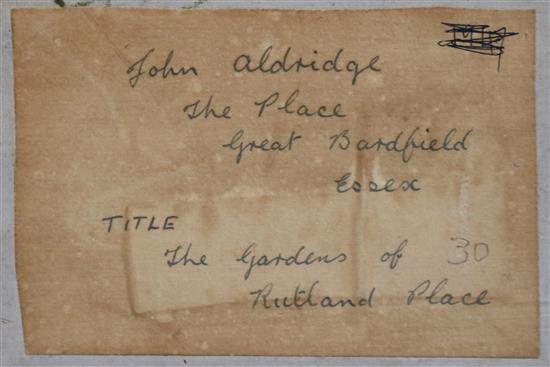 John Aldridge
The Place
Great Bardfield
Essex
TITLE
The Gardens of 30
Rutland Place